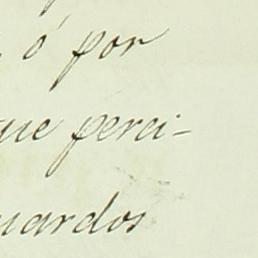 ó por
que perci-
uardos